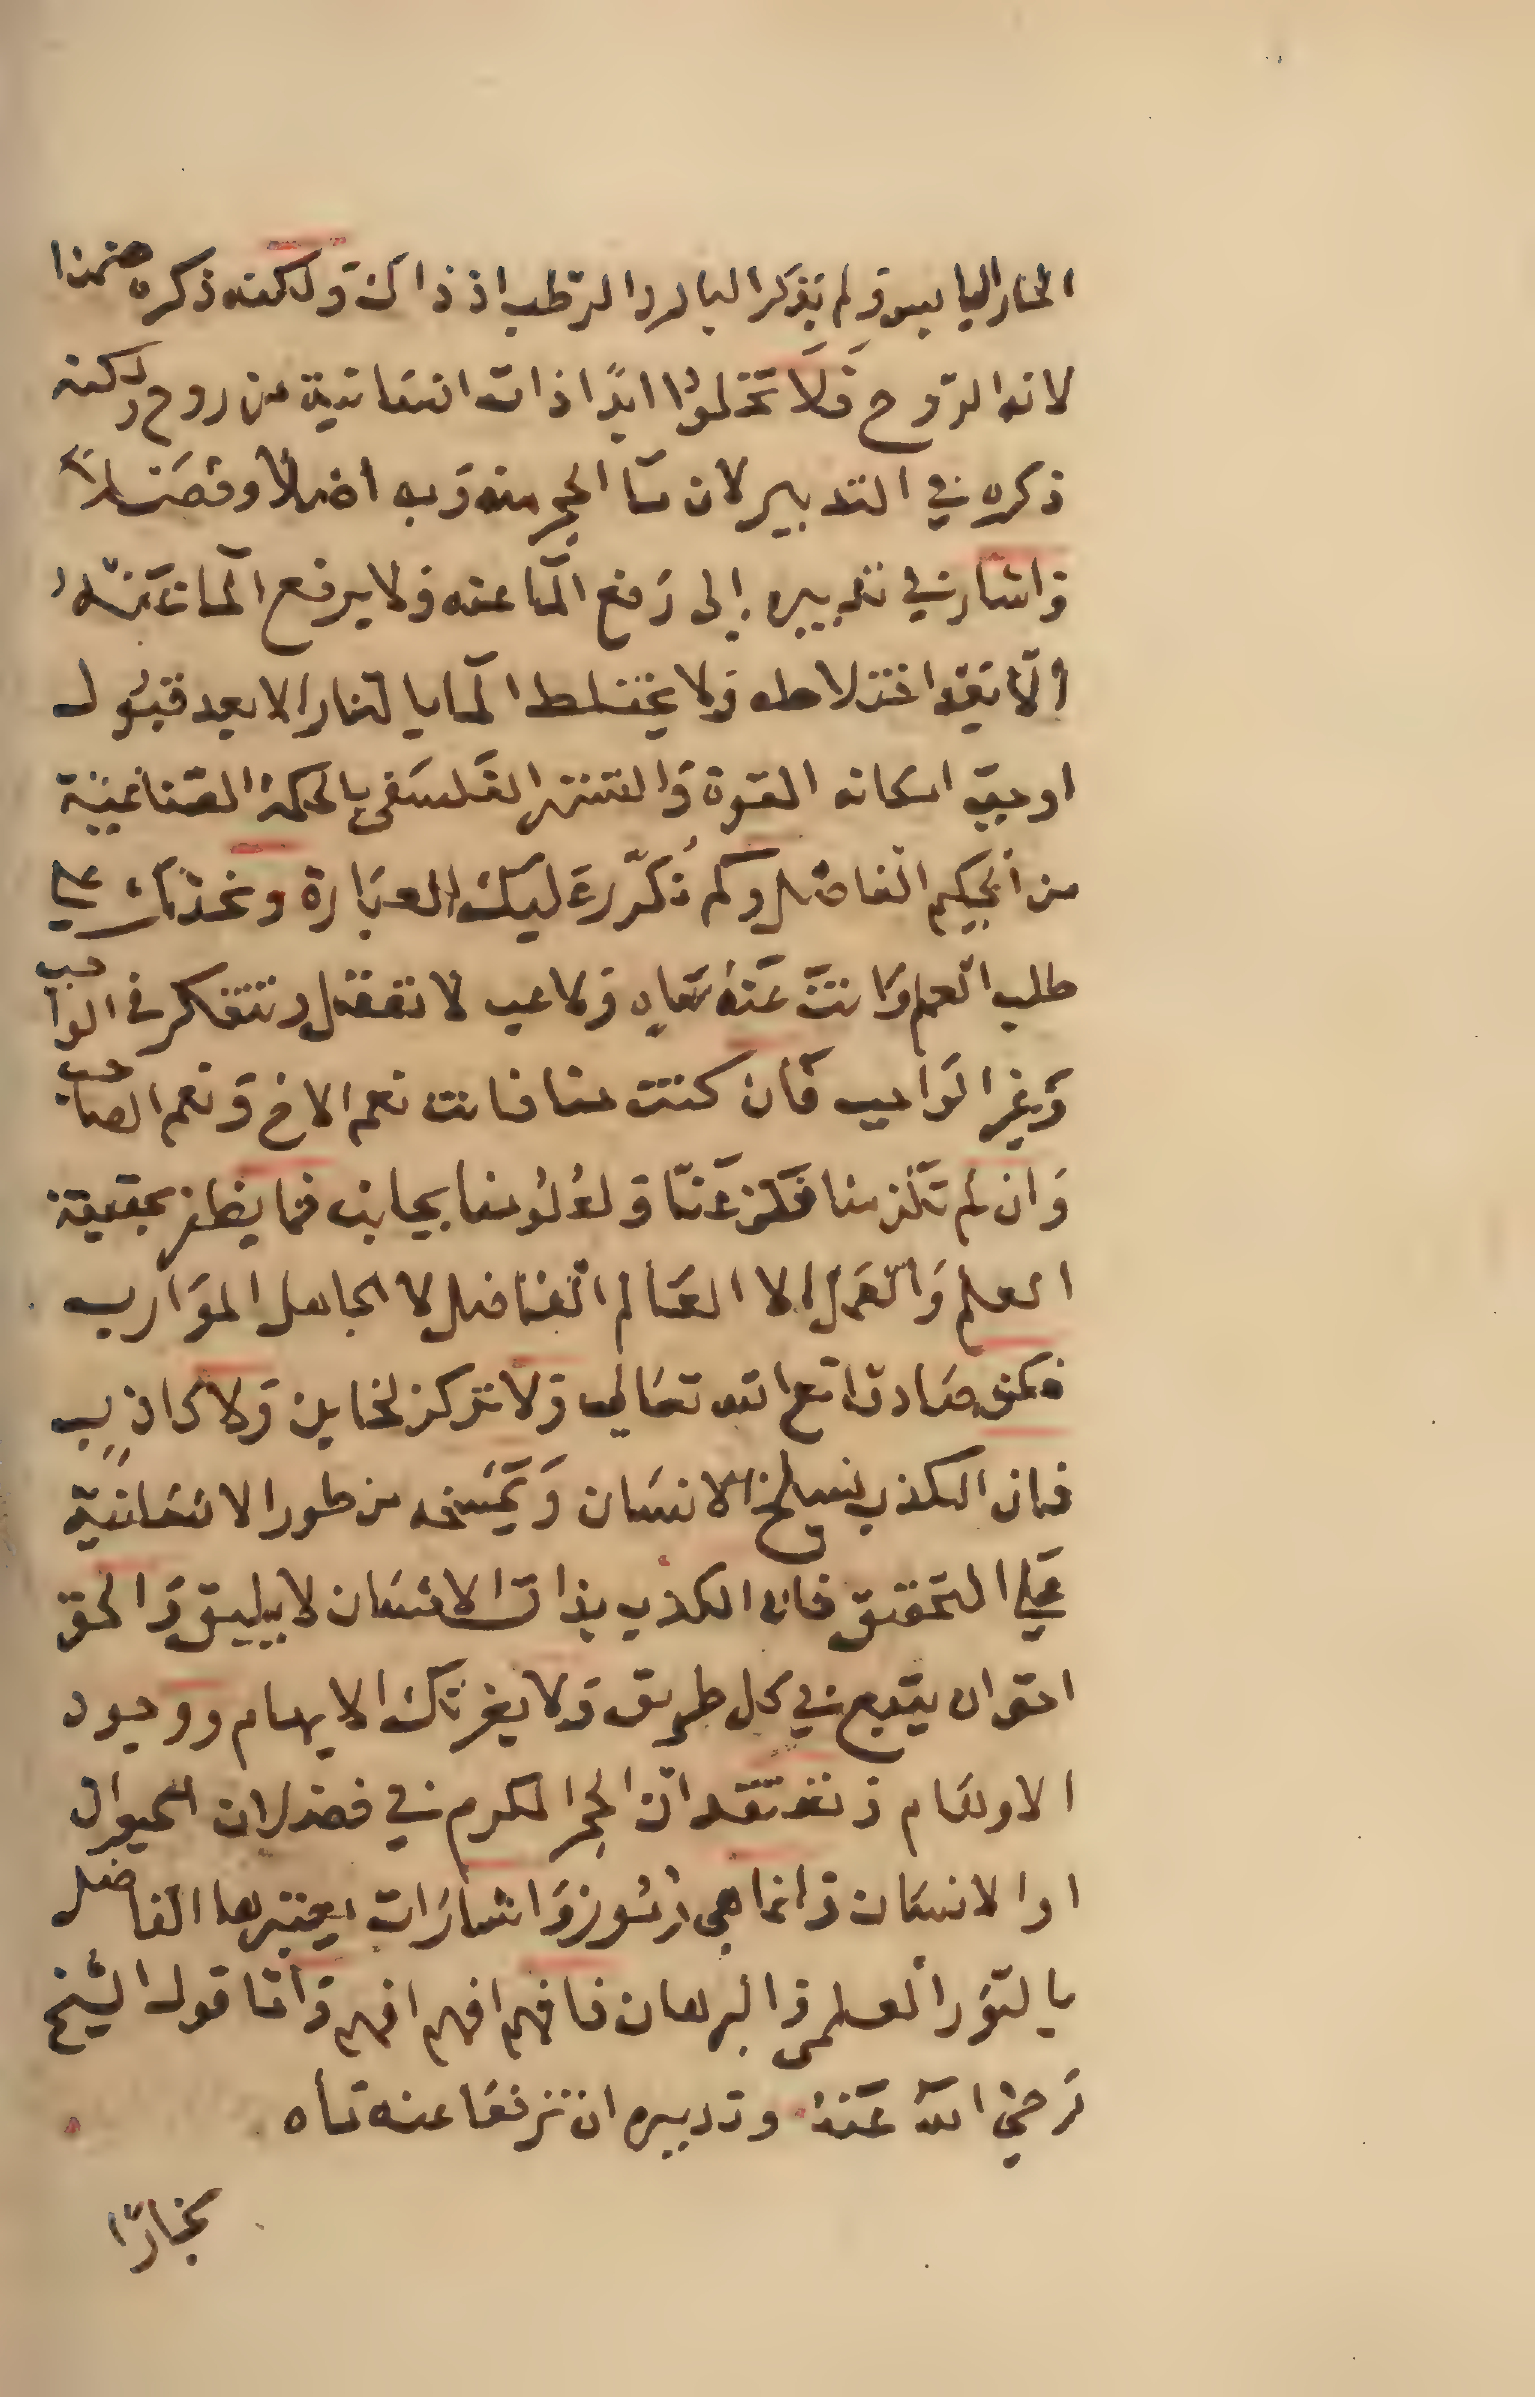 الحار اليابس ولم يذكر البارد الرطب اذ ذاك ولكنه ذكره ضمنا
لانه الروح فلا تخلوا ابدًا ذات انسانية من روح ولكنه
ذكره في التدبير لان ما الحجر منه وبه اصلا وفصلا
واشار في تدبيره إلى رفع الما عنه ولا يرفع الما عنه
الا بعد اختلاطه ولا يختلط الما بالنار الا بعد قبول
اوجبه اسكانه القوة والتستر الفلسفي بالحكمة الصناعية
من الحكيم الفاضل وكم نكرر عليك العبارة ونحذك على
طلب العلم وانت عنه ساه ولاعب لا تعقل وتتفكر في الواجب
وغير الواجب فان كنت منا فانت نعم الاخ ونعم الصاحب
وان لم تكن منا فكن عنا وعلومنا بجانب فما يظفر بحقيقة
العلم والعمل الا العالم الفاضل لا الجاهل الموارب
فكن صادقا مع الله تعالى ولا تركن لخاين ولا كاذب
فان الكذب يسلخ الانسان ويمسخه من طور الانسانية
على التحقيق فان الكذب بذات الانسان لا يليق والحق
احق ان يتبع في كل طريق ولا يغرنك الايهام ووجود
الاوهام فتعتقد ان الحجر المكرم في فضلات الحيوان
او الانسان وانما هي رموز واشارات يعتبرها الفاضل
بالنور العلمي والبرهان فافهم افهم افهم واما قول الشيخ
رضي الله عنه وتدبيره ان ترفعا عنه ماه
بخارًا